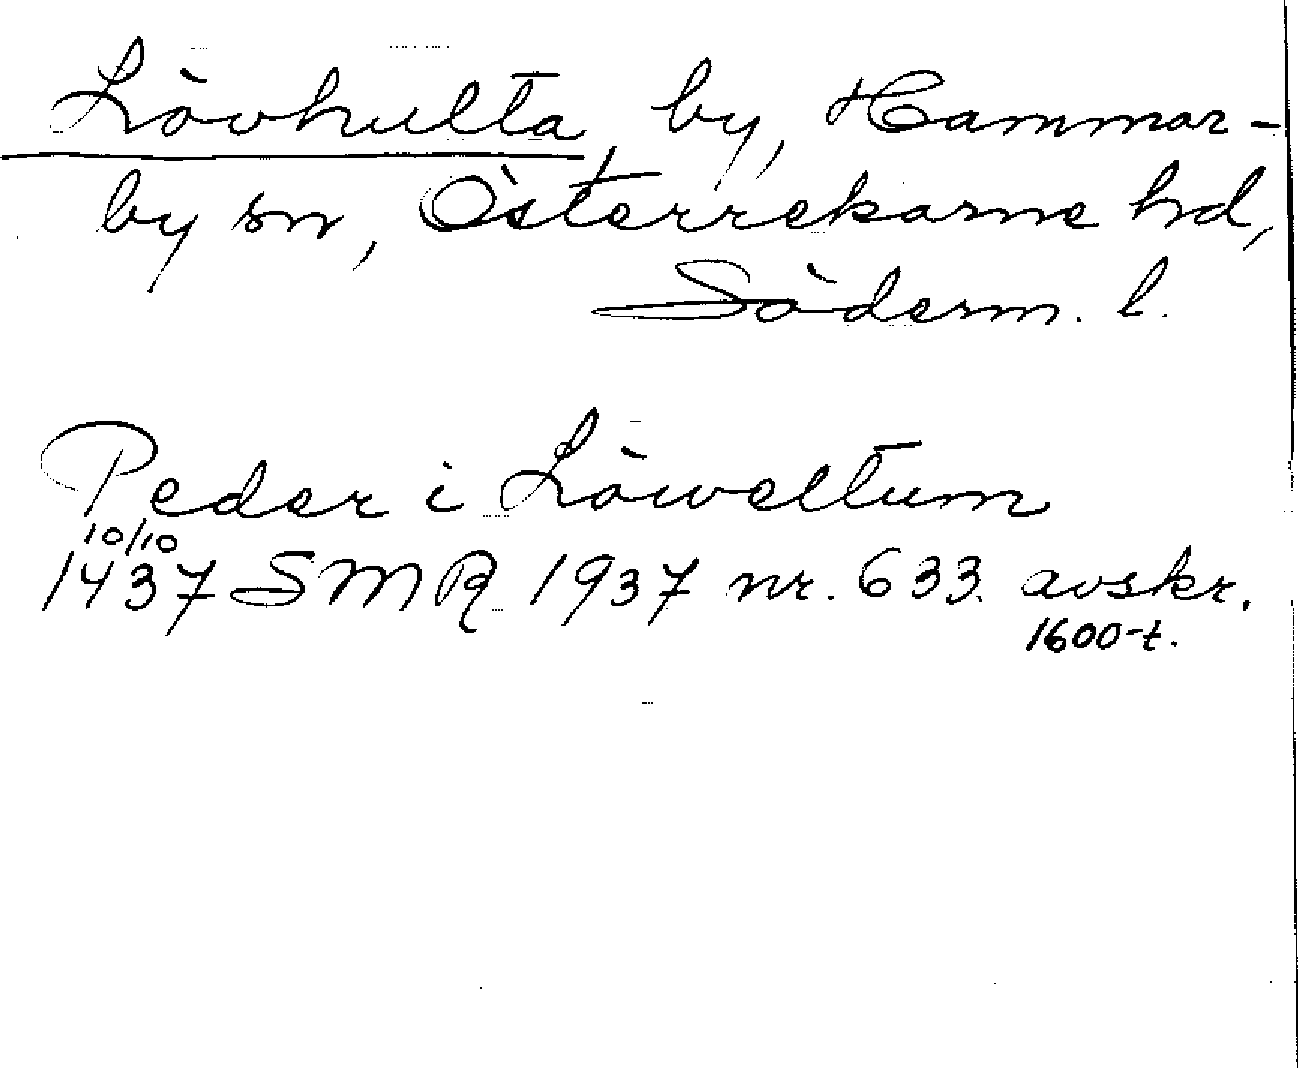 Lövhulta, by, Hammar-
by sn, Österrekarne hd,
Söderm. l.
Peder i Löweltum
10/10
1437 SMR 1937 nr. 633. avskr.
1600-t.